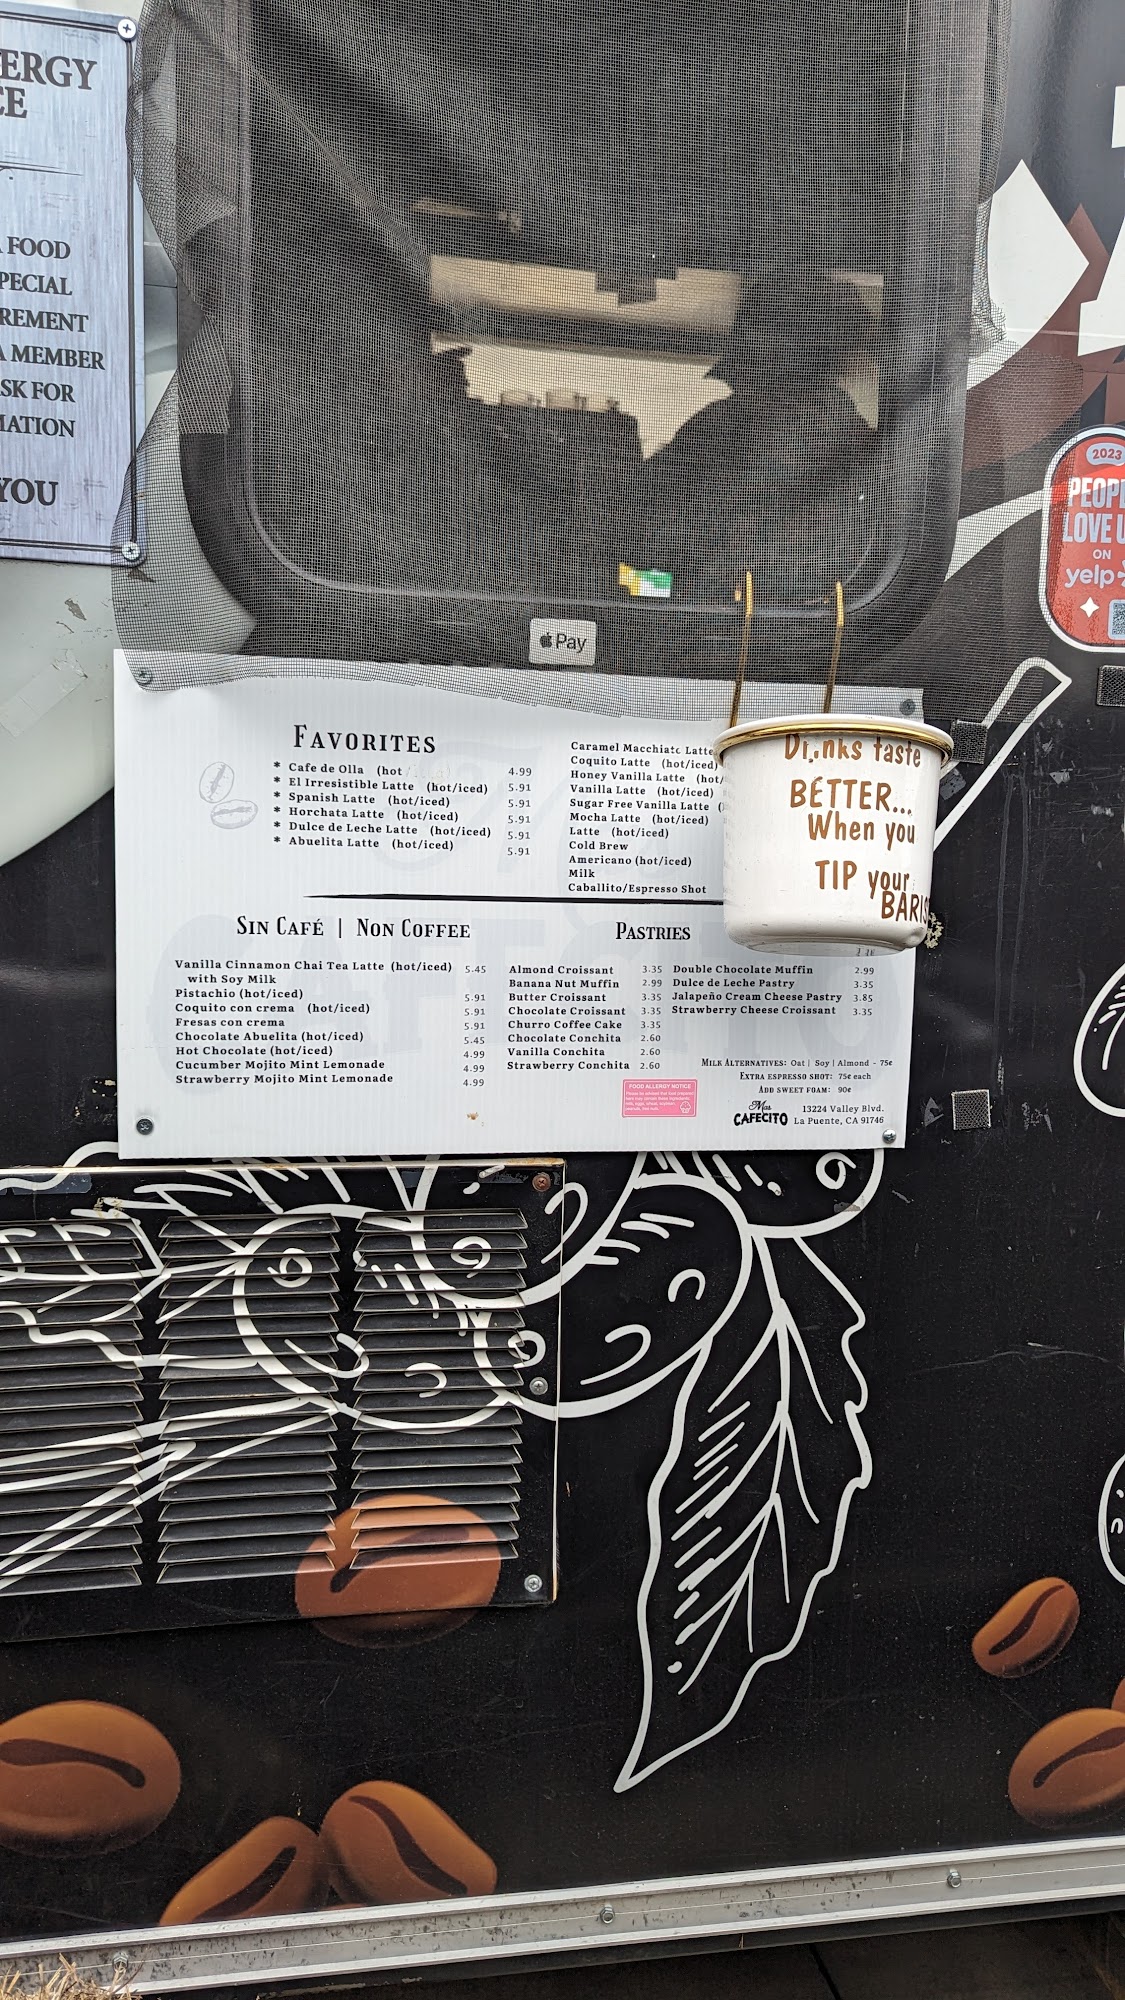 ERGY
CE
FOOD
PECIAL
REMENT
A MEMBER
SK FOR
MATION
YOU
2023
PEOPL
LOVE U
ON
yelp
Pay
FAVORITES
* Cafe de Olla (hot 4.99
* El Irresistible Latte (hot/iced) 5.91
* Spanish Latte (hot/iced) 5.91
* Horchata Latte (hot/iced) 5.91
* Dulce de Leche Latte (hot/iced) 5.91
* Abuelita Latte (hot/iced) 5.91
Caramel Macchiato Latte
Coquito Latte (hot/iced)
Honey Vanilla Latte (hot/
Vanilla Latte (hot/iced)
Sugar Free Vanilla Latte (
Mocha Latte (hot/iced)
Latte (hot/iced)
Cold Brew
Americano (hot/iced)
Milk
Caballito/Espresso Shot
Drinks taste
BETTER...
When you
TIP your
BARIS
SIN CAFÉ | NON COFFEE
Vanilla Cinnamon Chai Tea Latte (hot/iced) 5.45
with Soy Milk
Pistachio (hot/iced) 5.91
Coquito con crema (hot/iced) 5.91
Fresas con crema 5.91
Chocolate Abuelita (hot/iced) 5.45
Hot Chocolate (hot/iced) 4.99
Cucumber Mojito Mint Lemonade 4.99
Strawberry Mojito Mint Lemonade 4.99
PASTRIES
Almond Croissant 3.35
Banana Nut Muffin 2.99
Butter Croissant 3.35
Chocolate Croissant 3.35
Churro Coffee Cake 3.35
Chocolate Conchita 2.60
Vanilla Conchita 2.60
Strawberry Conchita 2.60
Double Chocolate Muffin 2.99
Dulce de Leche Pastry 3.35
Jalapeño Cream Cheese Pastry 3.85
Strawberry Cheese Croissant 3.35
MILK ALTERNATIVES: Oat | Soy | Almond - 75¢
EXTRA ESPRESSO SHOT: 75¢ each
ADD SWEET FOAM: 90¢
FOOD ALLERGY NOTICE
Mas
CAFECITO
13224 Valley Blvd.
La Puente, CA 91746